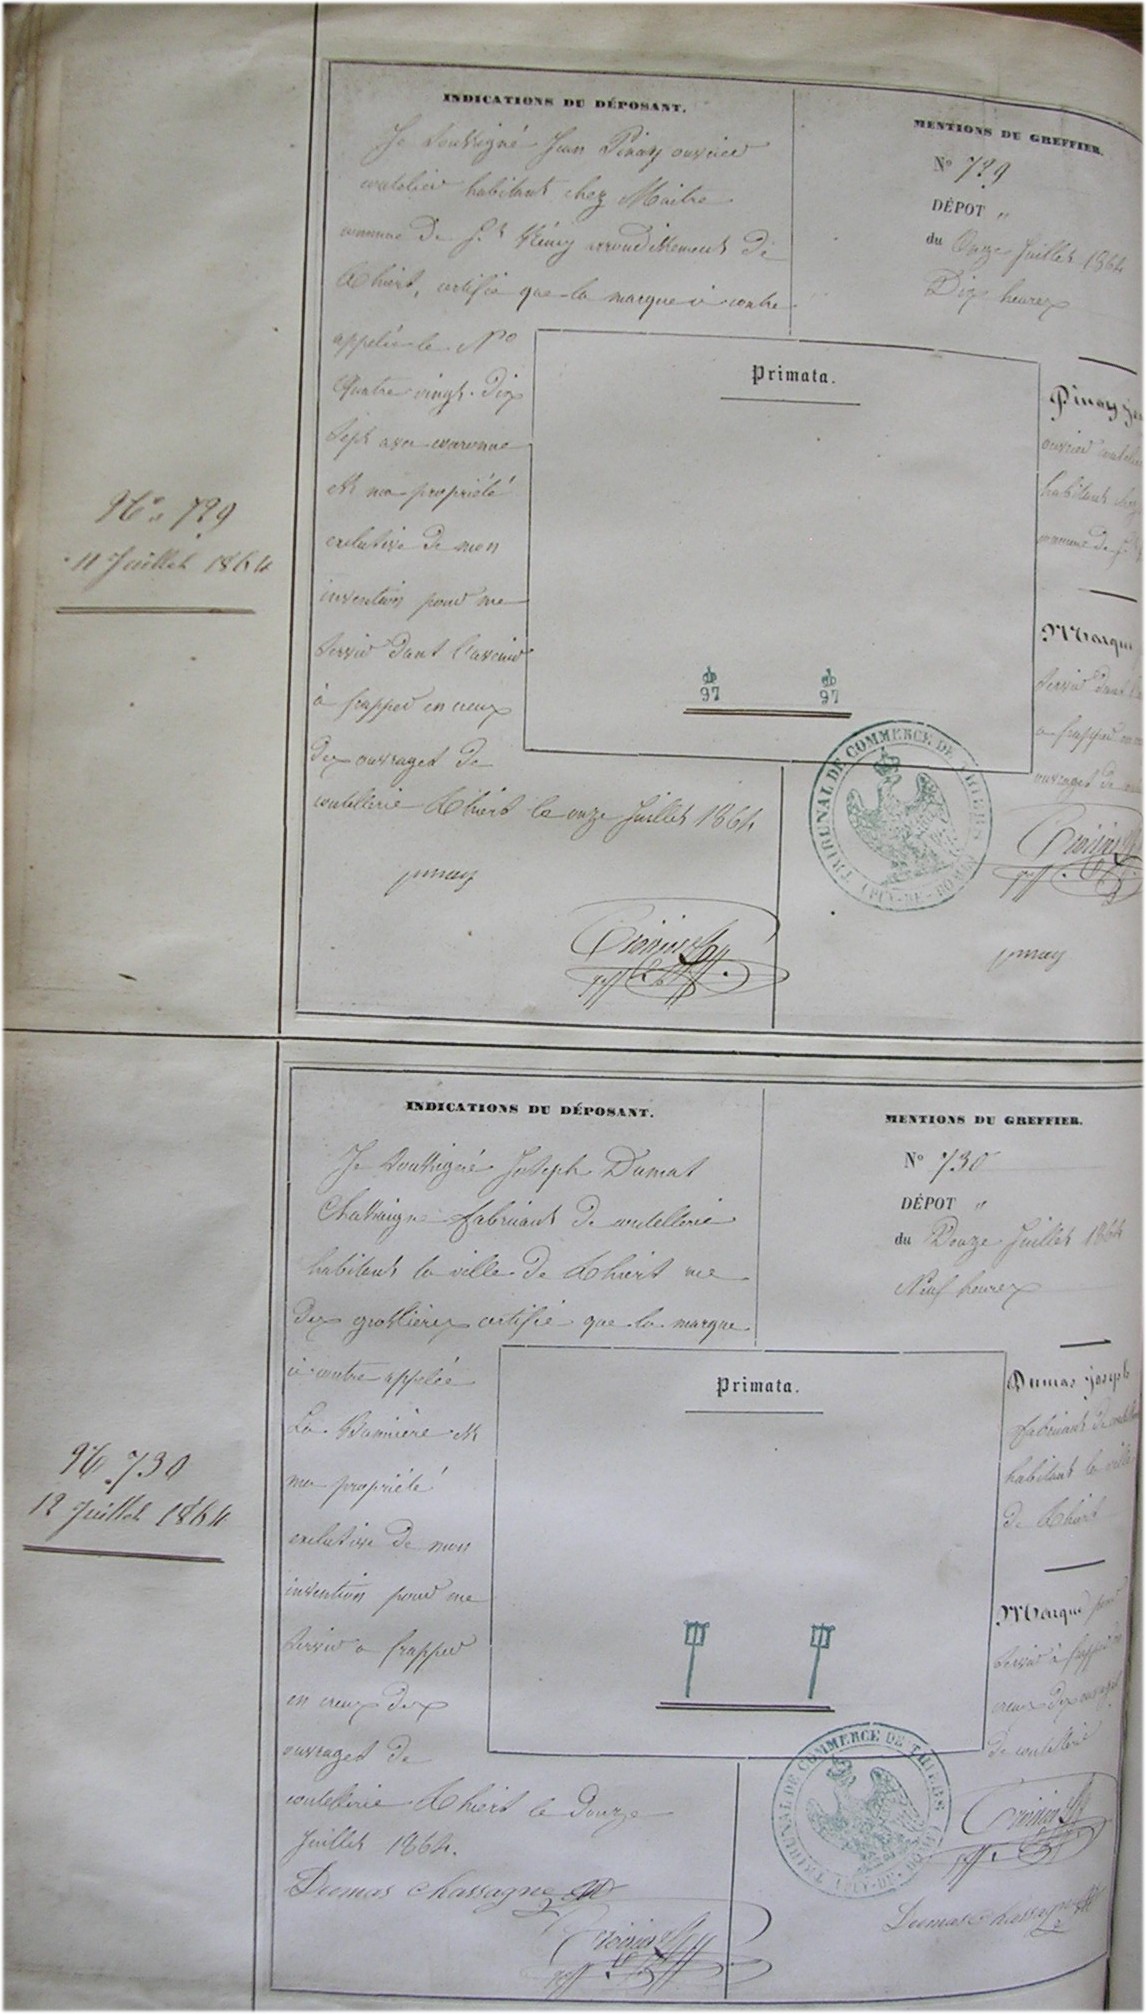 N° 729
11 Juillet 1864
INDICATIONS DU DÉPOSANT.
Je soussigné Jean Pinay ouvrier
coutelier habitant chez Maitre
commune de St Rémy arrondissement de
Thiers, certifie que la marque ci contre
appelée le No
Quatre vingt-dix
sept avec couronne
est ma propriété
exclusive de mon
invention pour me
servir dans l'avenir
à frapper en creux
des ouvrages de
coutellerie Thiers le onze Juillet 1864
pinay
Primata.
97 97
MENTIONS DU GREFFIER.
N° 729
DÉPOT "
du Onze Juillet 1864
Dix heures
Pinay
ouvrier
habitant chez
commune de St
Marque
servir dans
a frapper en
ouvrages de
TRIBUNAL DE COMMERCE DE THIERS
(PUY-DE-DOME)
pinay
N° 730
12 Juillet 1864
INDICATIONS DU DÉPOSANT.
Je soussigné Joseph Dumas
Chassaigne fabricant de coutellerie
habitant la ville de Thiers rue
des grossières certifie que la marque
ci-contre appelée
La Bannière est
ma propriété
exclusive de mon
invention pour me
servir a frapper
en creux des
ouvrages de
coutellerie Thiers le Douze
Juillet 1864.
Dumas Chassagne
Primata.
MENTIONS DU GREFFIER.
N° 730
DÉPOT "
du Douze Juillet 1864
Neuf heures
Dumas joseph
fabricant de
habitant la ville
de Thiers
Marque pour
servir à frapper en
creux des ouvrages
de coutellerie
TRIBUNAL DE COMMERCE DE THIERS
(PUY-DE-DOME)
Dumas Chassagne